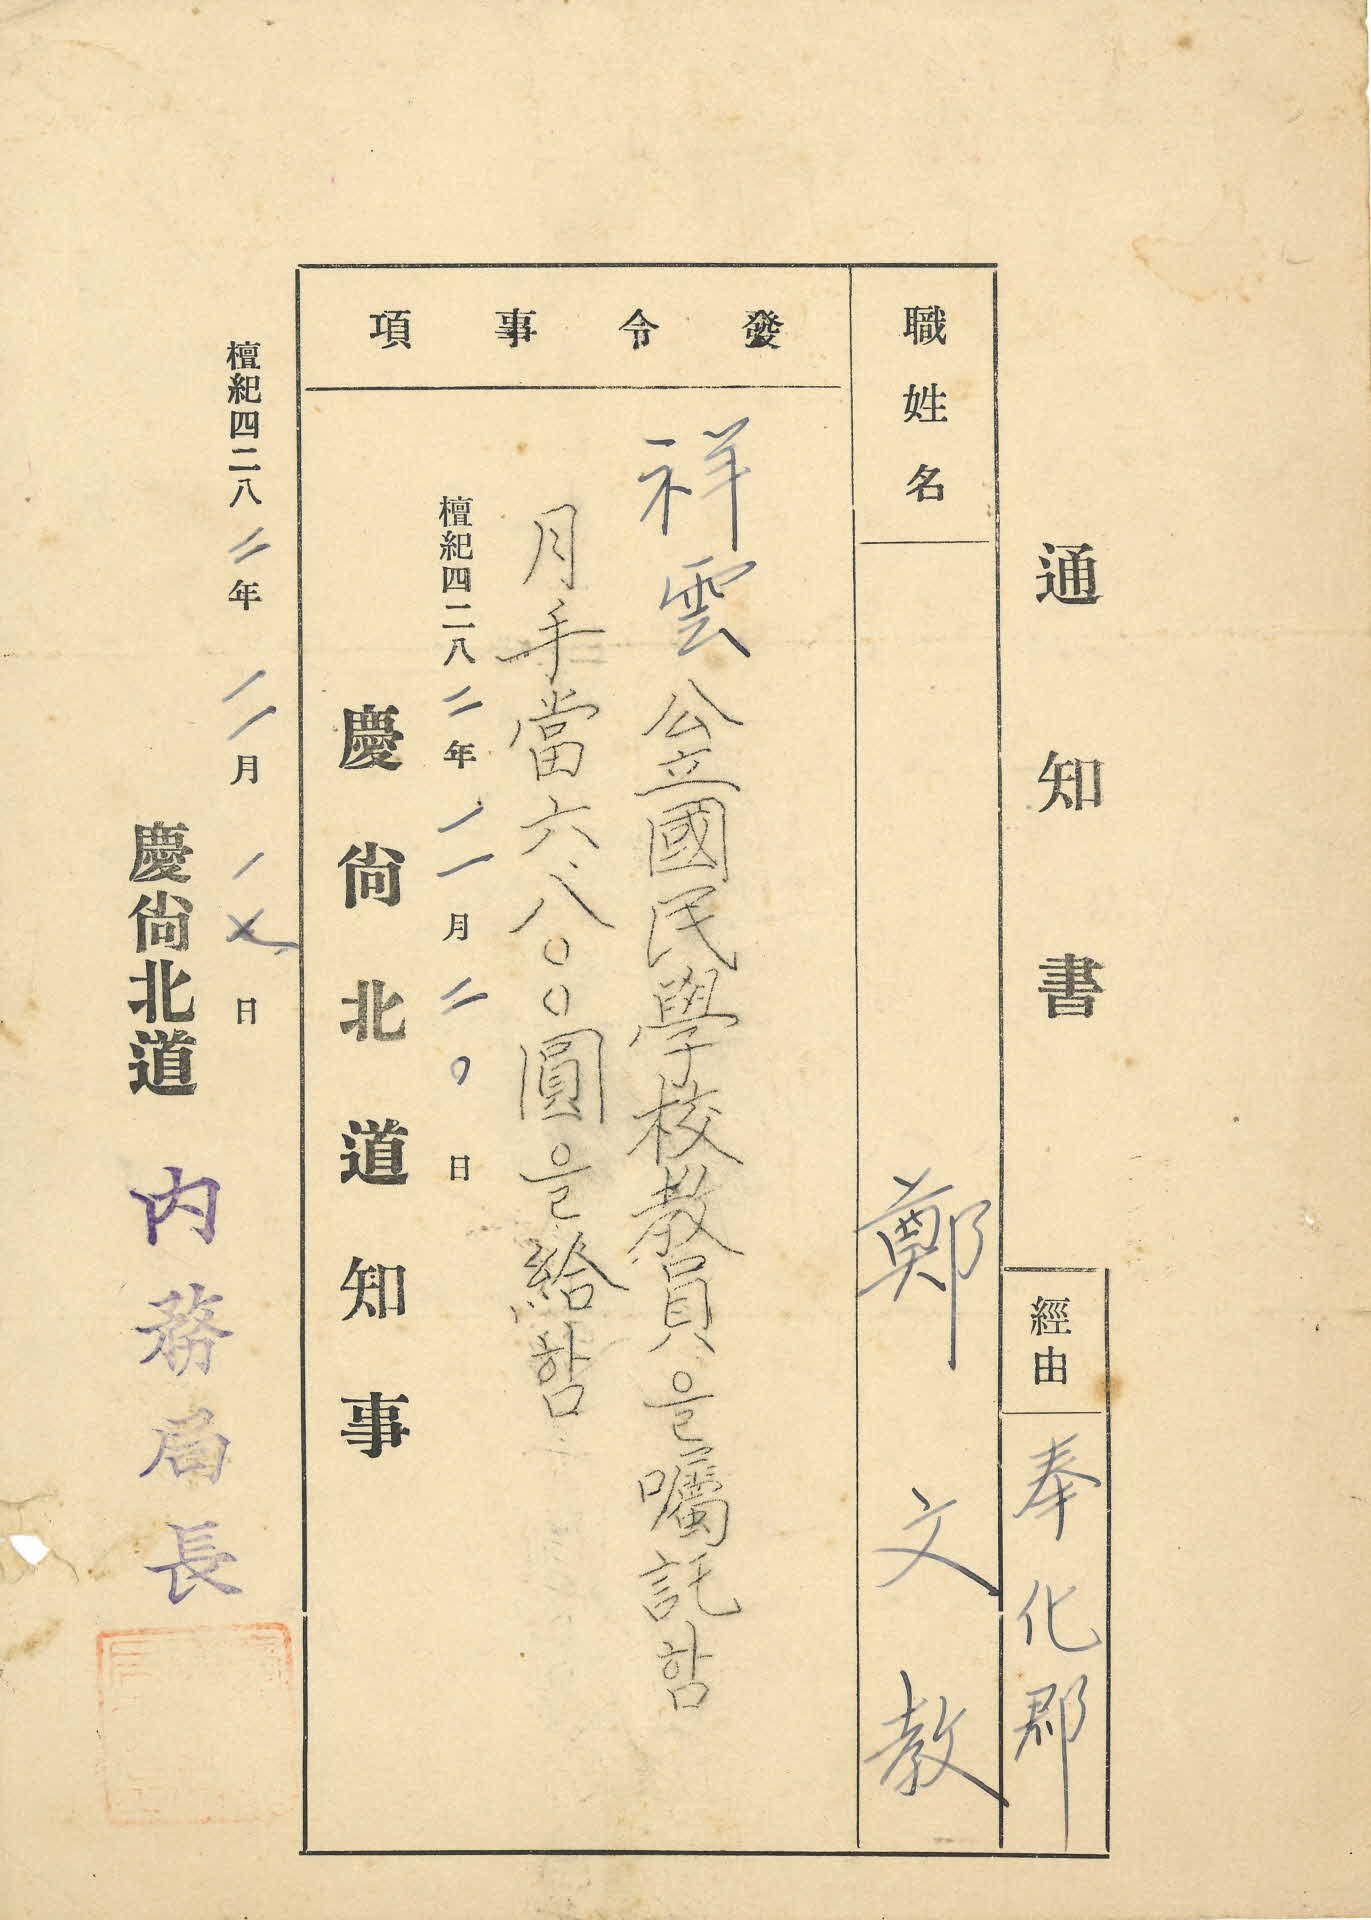 通知書
經由 奉化郡
職姓名 鄭文敎
發令事項
祥雲公立國民學校敎員을囑託함
月手當六、八〇〇圓을給함
檀紀四二八二年一一月二〇日
慶尙北道知事
檀紀四二八二年一一月一 日
慶尙北道 內務局長